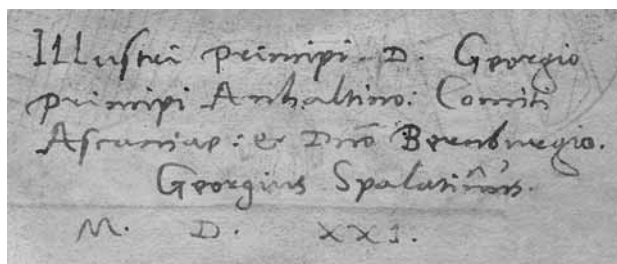 Illustri principi. D. Georgio
principi Anhaltino: Comiti
Ascaniae: & Dno Bernburgio.
Georgius Spalatinus.
M. D. XXI.